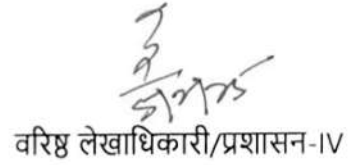 वरिष्ठ लेखाधिकारी/प्रशासन-IV